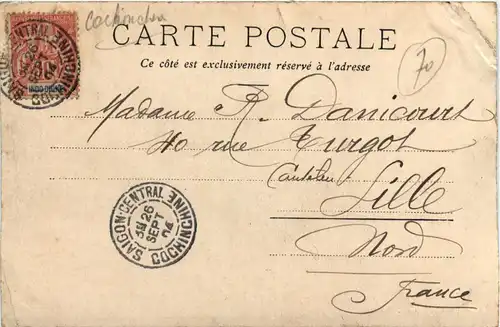 Cochinchin
CARTE POSTALE
Ce côté est exclusivement réservé à l'adresse
70
INDO-CHINE
Madame R. Danicourt
40 rue Turgot
Canteleu
Lille
Nord
France
SAIGON-CENTRAL
26
SEPT
04
COCHINCHINE